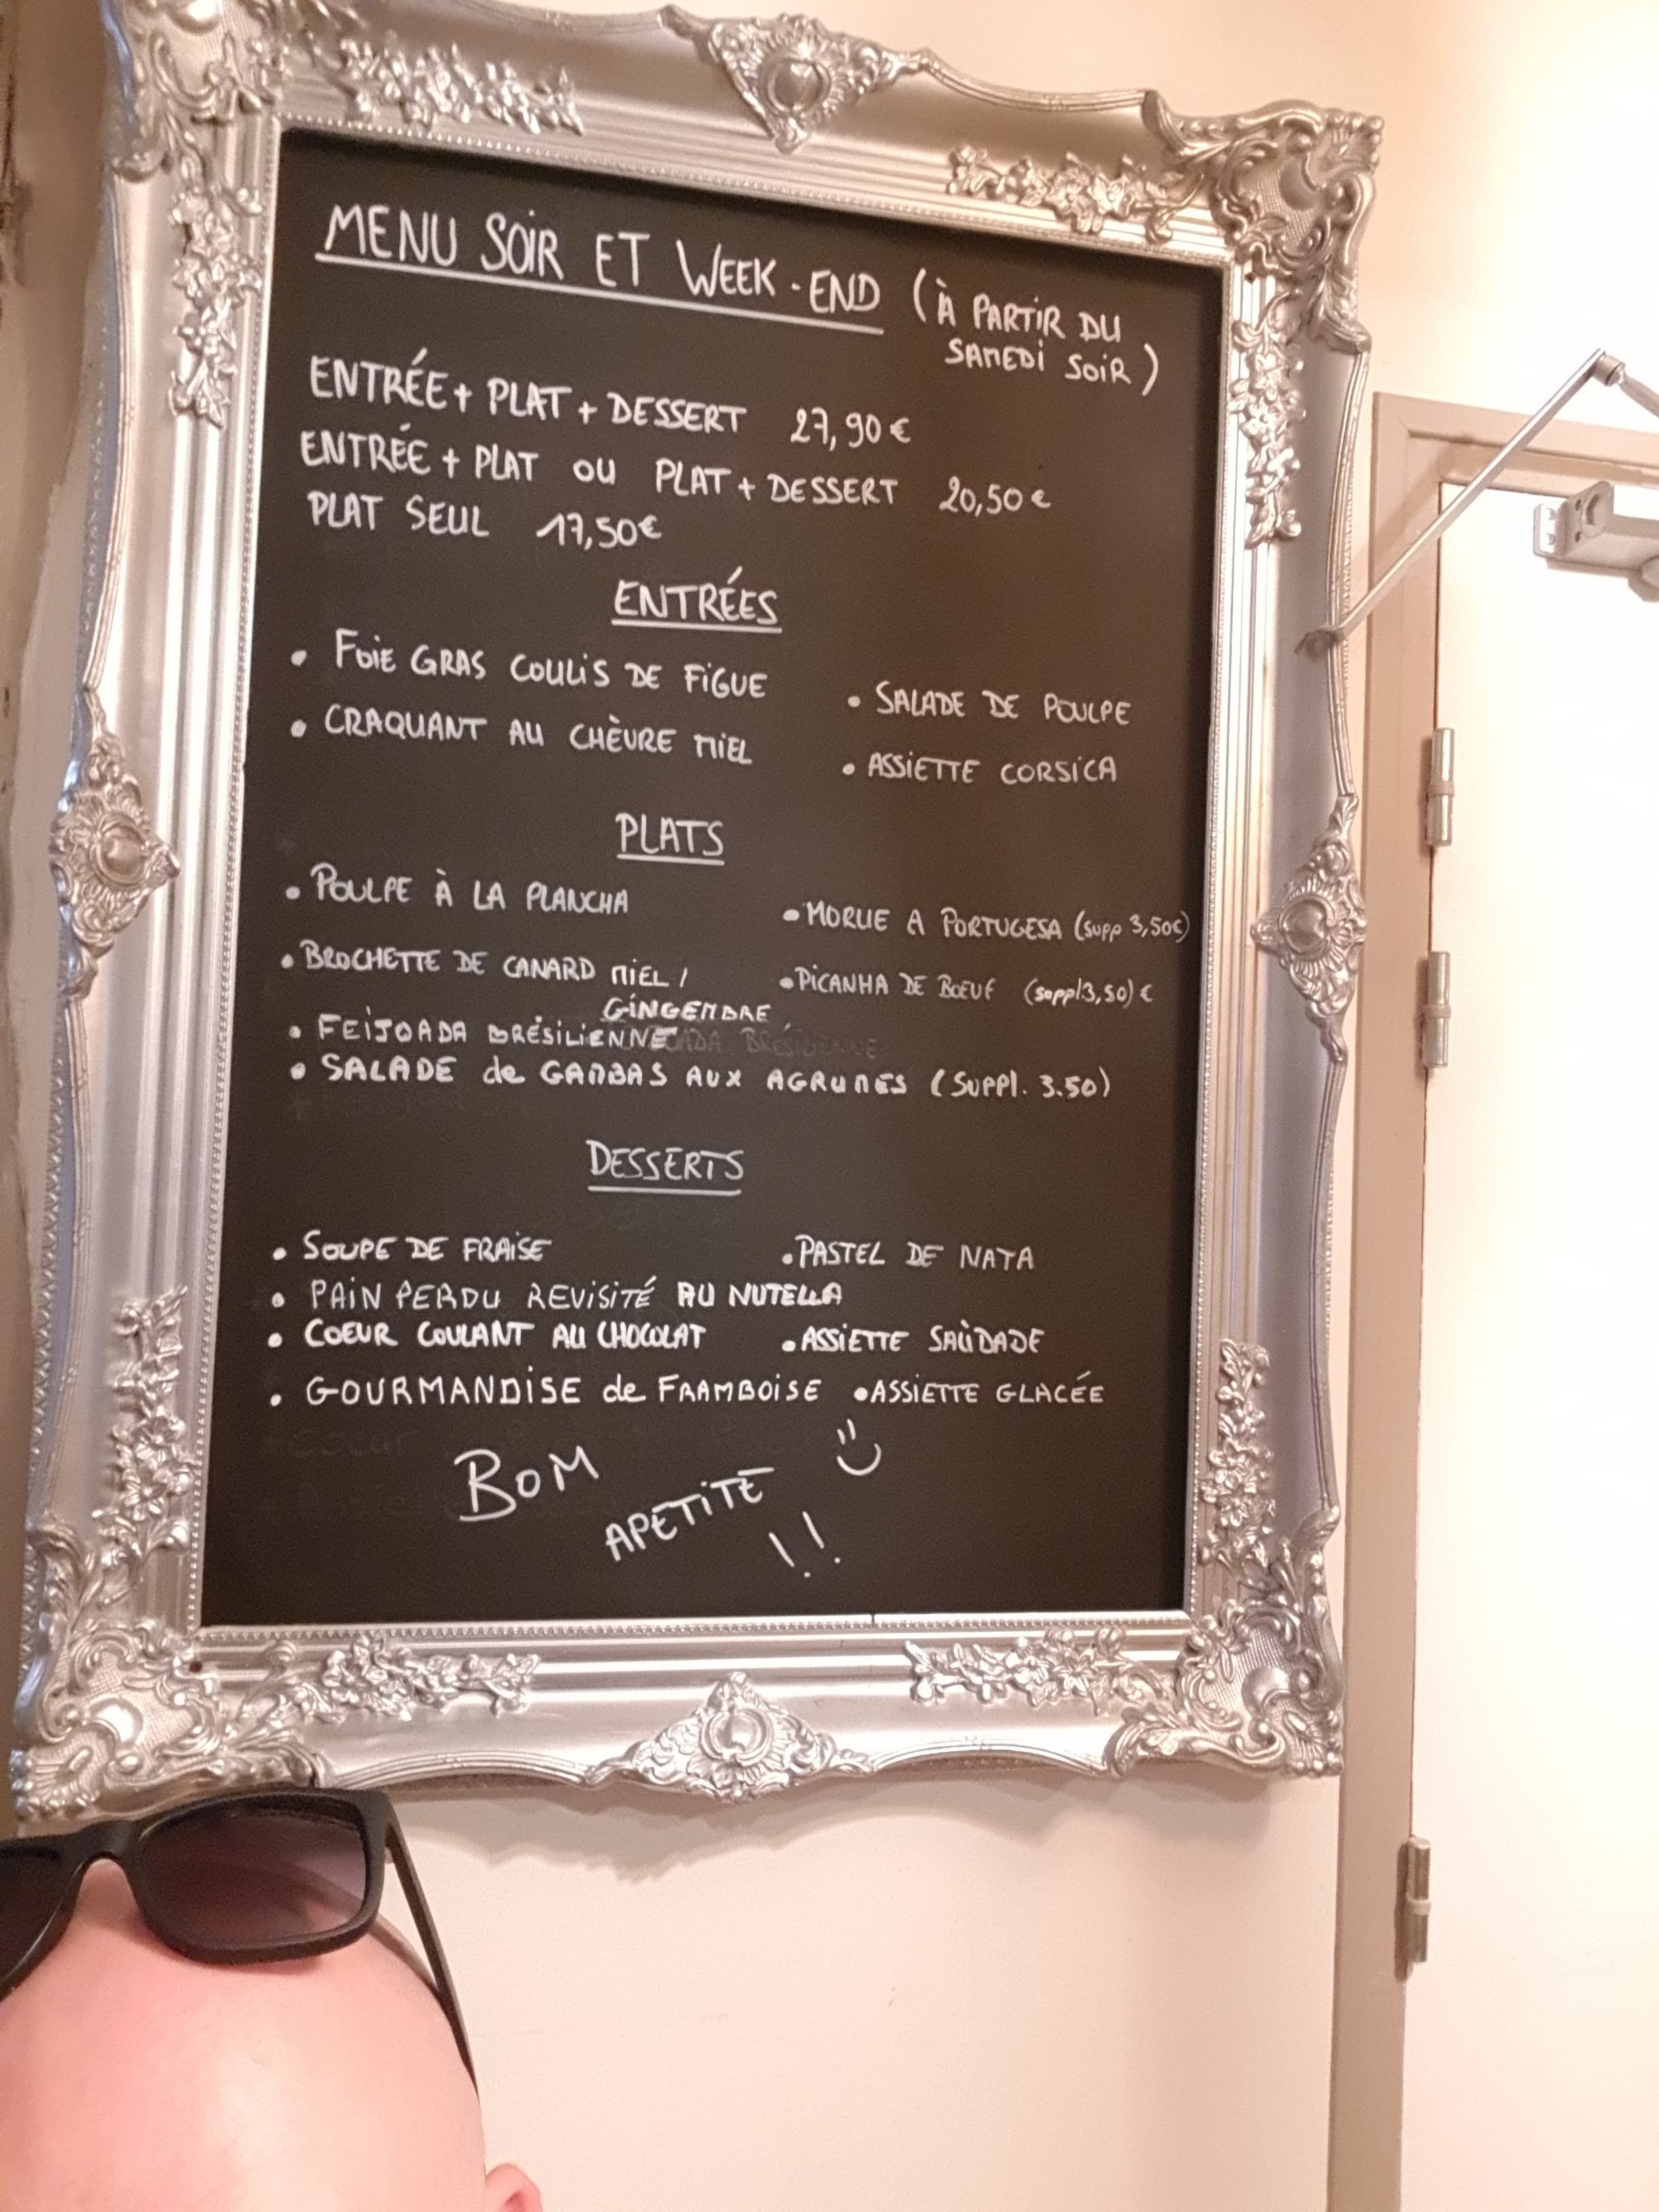 MENU SOIR ET WEEK-END (À PARTIR DU
SAMEDI SOIR)
ENTRÉE + PLAT + DESSERT 27,90 €
ENTRÉE + PLAT OU PLAT + DESSERT 20,50 €
PLAT SEUL 17,50€
ENTRÉES
• FOIE GRAS COULIS DE FIGUE
• SALADE DE POULPE
• CRAQUANT AU CHÈVRE MIEL
• ASSIETTE CORSICA
PLATS
• POULPE À LA PLANCHA
• MORUE A PORTUGESA (supp 3,50€)
• BROCHETTE DE CANARD MIEL /
GINGEMBRE
• PICANHA DE BOEUF (suppl 3,50) €
• FEIJOADA BRÉSILIENNE
• SALADE de GAMBAS AUX AGRUMES (SUPPl. 3.50)
DESSERTS
• SOUPE DE FRAISE
• PASTEL DE NATA
• PAIN PERDU REVISITÉ AU NUTELLA
• COEUR COULANT AU CHOCOLAT
• ASSIETTE SAÜDADE
• GOURMANDISE de FRAMBOISE
• ASSIETTE GLACÉE
BOM
APETITE
!!